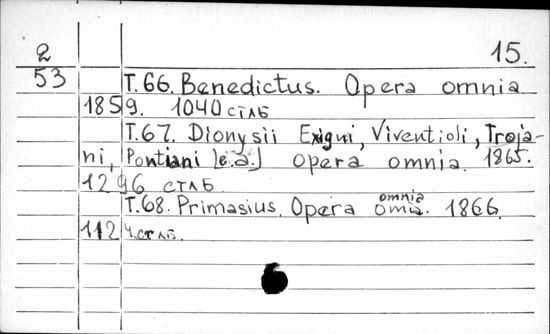 2 15.
53 Т.66. Benedictus. Opera omnia
1859. 1040 стлб
Т.67. Dionysii Exigui, Viventioli, Troja-
ni, Pontiani [e.a.] opera omnia. 1865.
1296 стлб
Т.68. Primasius. Opera omnia. 1866.
1124 стлб.